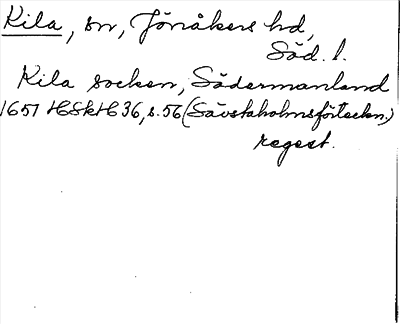 Kila, sn, Jönåkers hd,
Söd. l.
Kila socken, Södermanland
1651 HSkH 36, s. 56 (Sävstaholmsförteckn.)
regest.